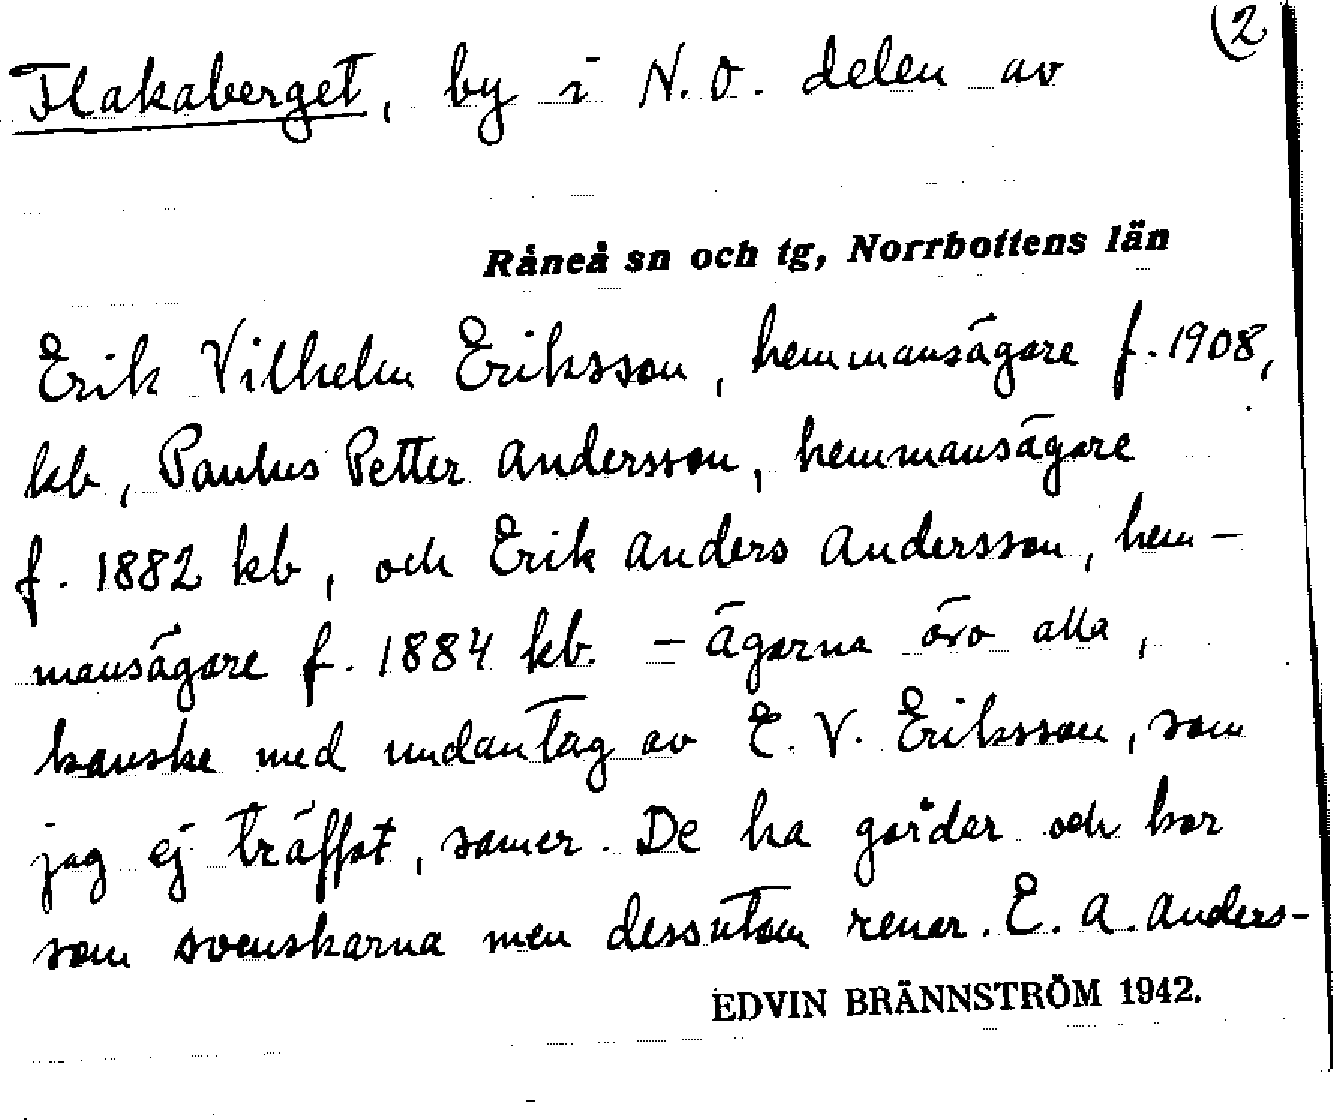 (2
Flakaberget, by i N.O. delen av
Råneå sn och tg, Norrbottens län
Erik Vilhelm Eriksson, hemmansägare f. 1908,
kb, Paulus Petter Andersson, hemmansägare
f. 1882 kb, och Erik Anders Andersson, hem-
mansägare f. 1884 kb. - Ägarna äro alla,
kanske med undantag av E. V. Eriksson, som
jag ej träffat, samer. De ha gårdar och bor
som svenskarna men dessutom renar. E. A. Anders-
EDVIN BRÄNNSTRÖM 1942.